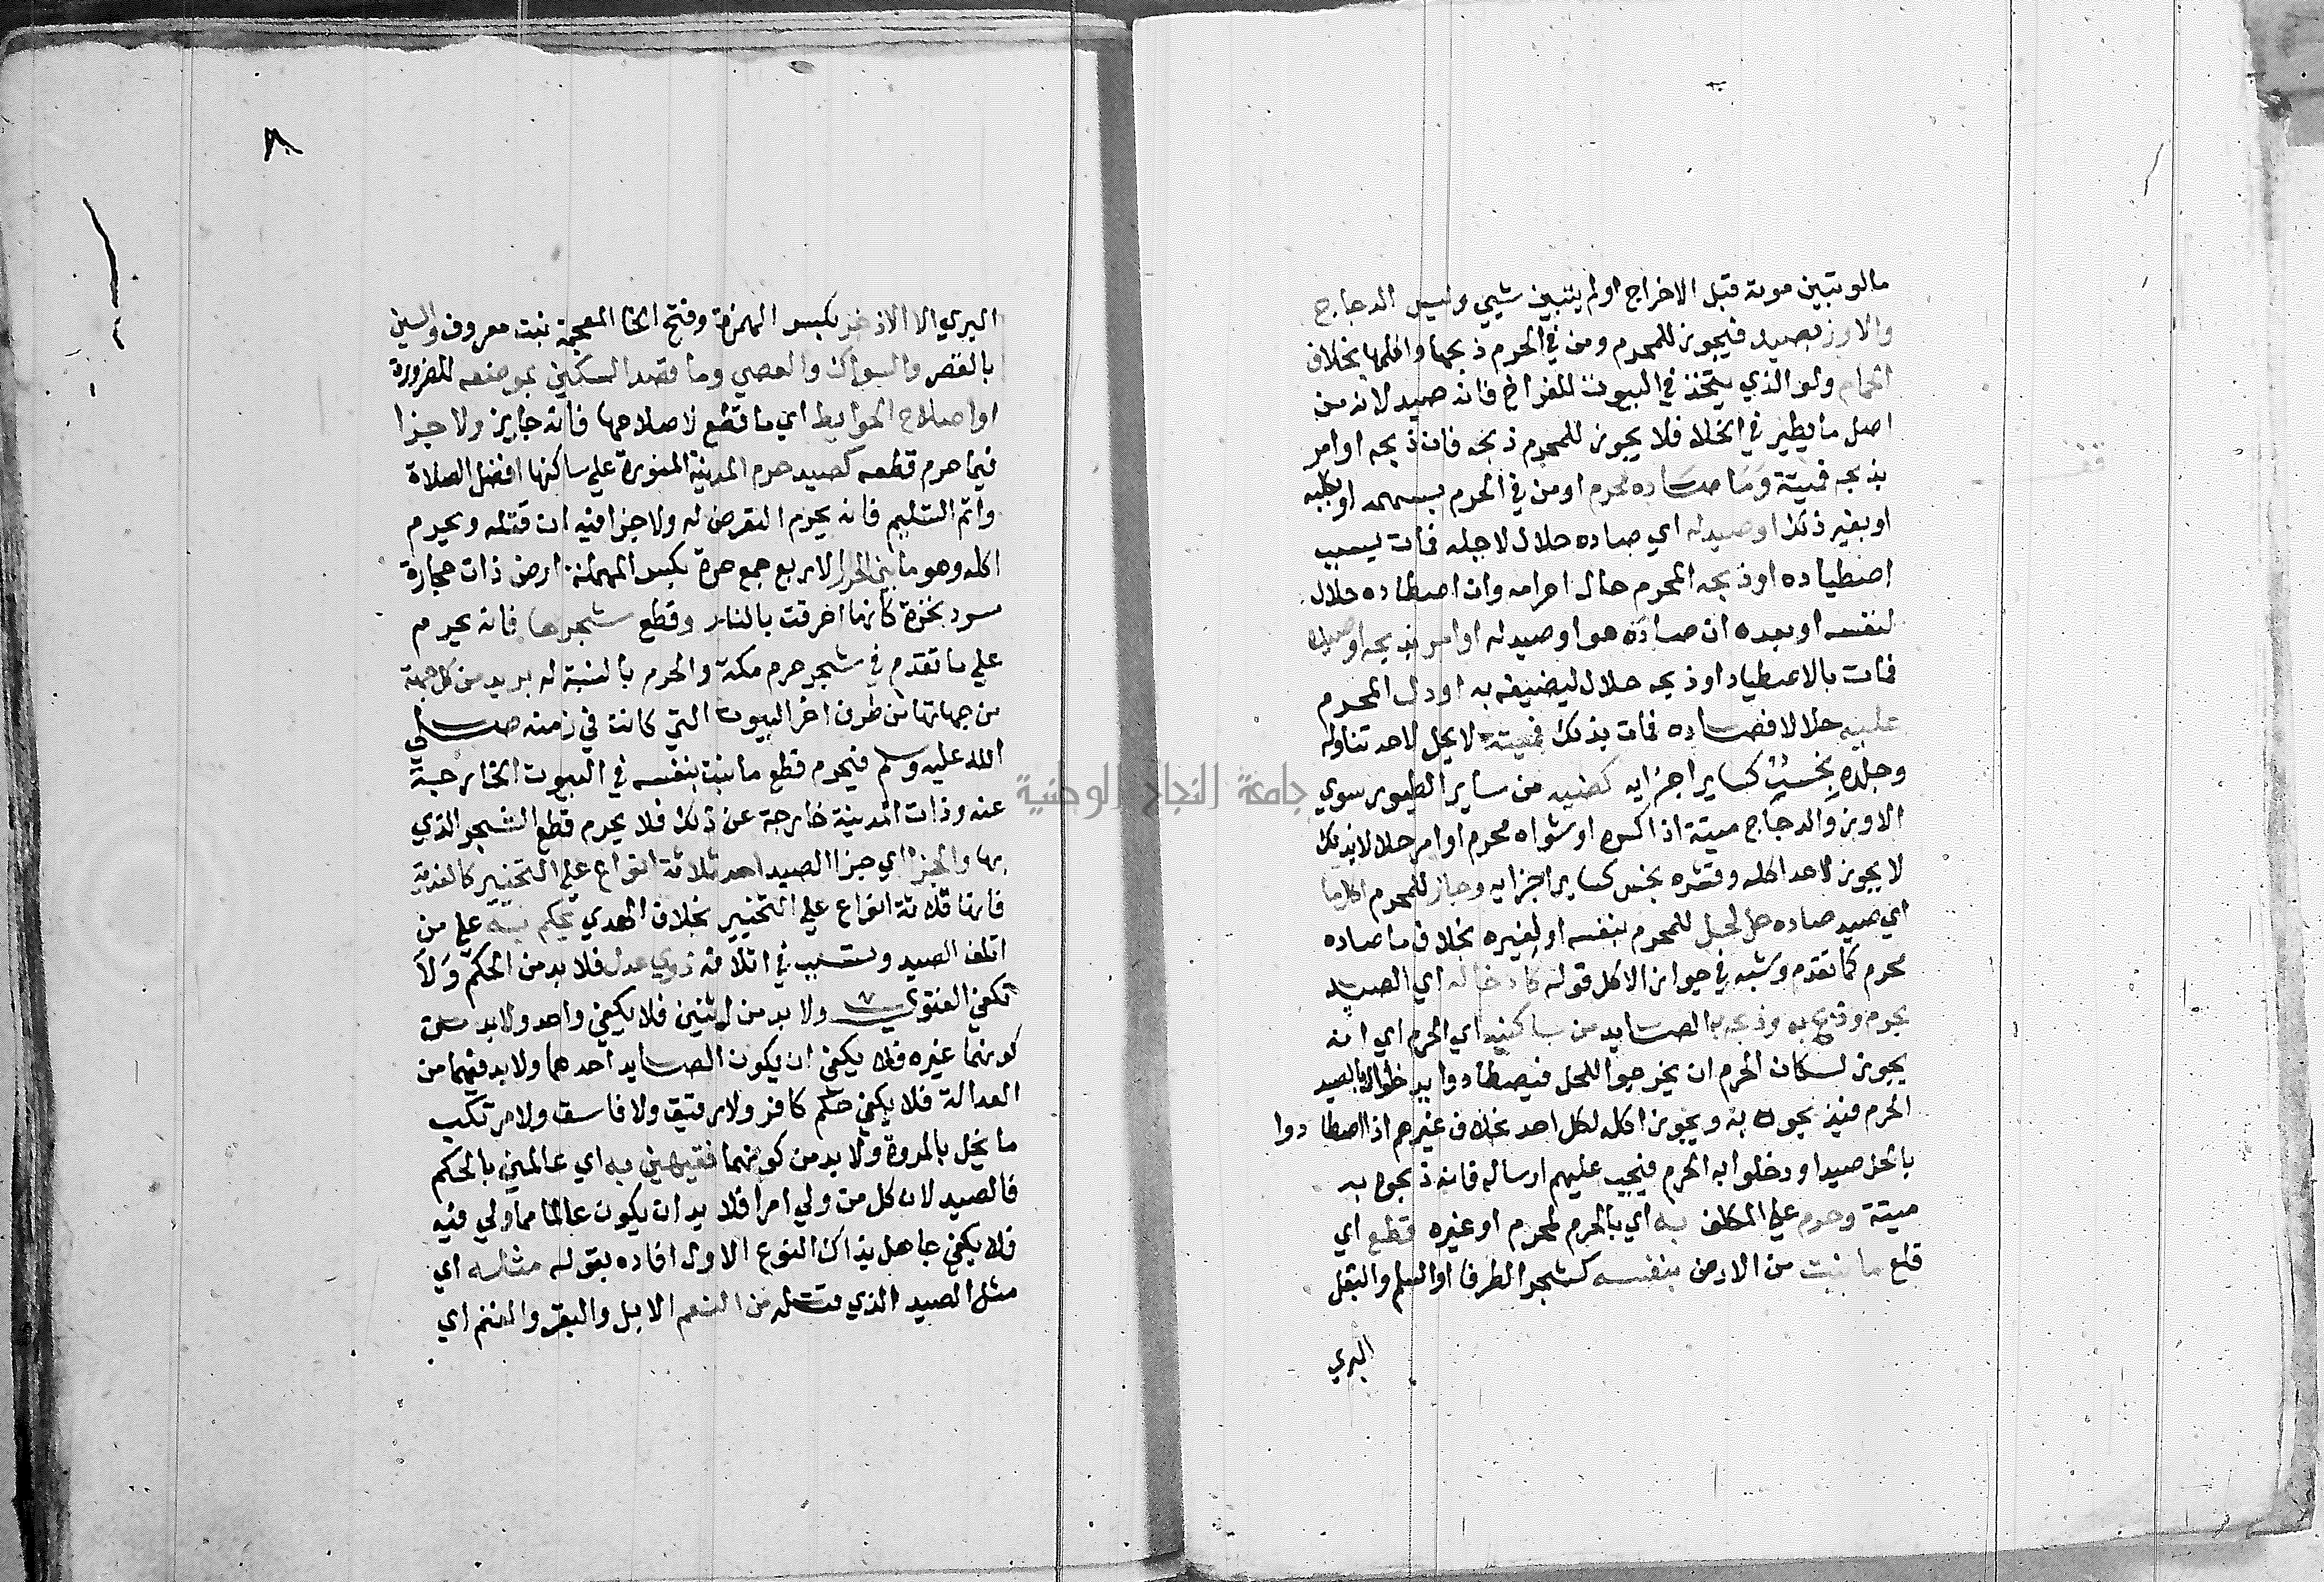 مالو تبين موته قبل الاخراج اولم يتبين شيي وليس الدجاج
والاوز بصيد فيجوز للمحرم ومن في الحرم ذبحها واكلها بخلاف
الحمام ولو الذي يتخذ في البيوت للفراخ فانه صيد لانه من
اصل ما يطير في الخلا فلا يجوز للمحرم ذبحه فان ذبحه اوامر
بذبحه فميتة وما صاده محرم او من في الحرم بسهمه او بكلبه
او بغير ذلك او صيد له اي صاده حلال لاجله فمات بسبب
اصطياده او ذبحه المحرم حال احرامه وان اصطاده حلال
لنفسه او بعده ان صاده هو او صيد له او امر بذبحه او صيده
فمات بالاصطياد او ذبحه حلال ليضيفه به او دل المحرم
عليه حلالا فصاده فمات بذلك فميتة لا يحل لاحد تناوله
وجلده نجس كساير اجزايه كبيضه من ساير الطيور سوي
الاوز والدجاج ميتة اذا كسره او شواه محرم او امر حلالا بذلك
لا يجوز لاحد اكله وقشره نجس كساير اجزايه وجاز للمحرم اكل ما
اي صيد صاده حل لحل للمحرم بنفسه او لغيره بخلاف ما صاده
محرم كما تقدم وشبه في جواز الاكل قوله كادخاله اي الصيد
بحرم وذبح به وذبحه بالصايد من ساكنيه اي الحرم اي انه
يجوز لسكان الحرم ان يخرجوا للحل فيصطادوا ويدخلوا بالصيد
الحرم فيذبحونه به ويجوز اكله لكل احد بخلاف غيرهم اذا اصطادوا
بالحل صيدا ودخلوا به الحرم فيجب عليهم ارساله فان ذبحوه به
ميتة وحرم علي المكلف به اي بالحرم لمحرم او غيره قطع اي
قلع ما ينبت من الارض بنفسه كشجر الطرفا او السلم والبقل
البري
٨
البري الا الاذخر بكسر الهمزة وفتح الخا المعجمة نبت معروف والسين
بالقصر والسواك والعصي وما قصد السكني بموضعه للضرورة
او اصلاح الحوايط اي ما قطع لاصلاحها فانه جايز ولا جزا
فيما حرم قطعه كصيد حرم المدينة المنورة علي ساكنها افضل الصلاة
واتم التسليم فانه يحرم التعرض له ولا جزا فيه ان قتله ويحرم
اكله وهو ما بين الحرار الاربع جمع حرة بكسر المهملة ارض ذات حجارة
سود نخرة كانها احرقت بالنار وقطع شجرها فانه يحرم
علي ما تقدم في شجر حرم مكة والحرم بالنسبة له بريد من كل جهة
من جهاتها من طرف اخر البيوت التي كانت في زمنه صلي
الله عليه وسلم فيحرم قطع ما نبت بنفسه في البيوت الخارجة
عنه وذات المدينة خارجة عن ذلك فلا يحرم قطع الشجر الذي
بها والجزا اي جزا الصيد احد ثلاثة انواع علي التخيير كالفدية
فانها ثلاثة انواع علي التخيير بخلاف الهدي يحكم به علي من
اتلف الصيد وتسبب في اتلافه ذوي عدل فلا بد من الحكم ولا
تكفي الفتوي ولا بد من اثنين فلا يكفي واحد ولا بد من
كونهما غيره فلا يكفي ان يكون الصايد احدهما ولا بد فيهما من
العدالة فلا يكفي حكم كافر ولا رقيق ولا فاسق ولا مرتكب
ما يخل بالمروة ولا بد من كونهما فقيهين به اي عالمين بالحكم
فالصيد لان كل من ولي امرا فلا بد ان يكون عالما بما ولي فيه
فلا يكفي جاهل بذاك النوع الاول افاده بقوله مثله اي
مثل الصيد الذي قتله من النعم الابل والبقر والغنم اي
جامعة النجاح الوطنية